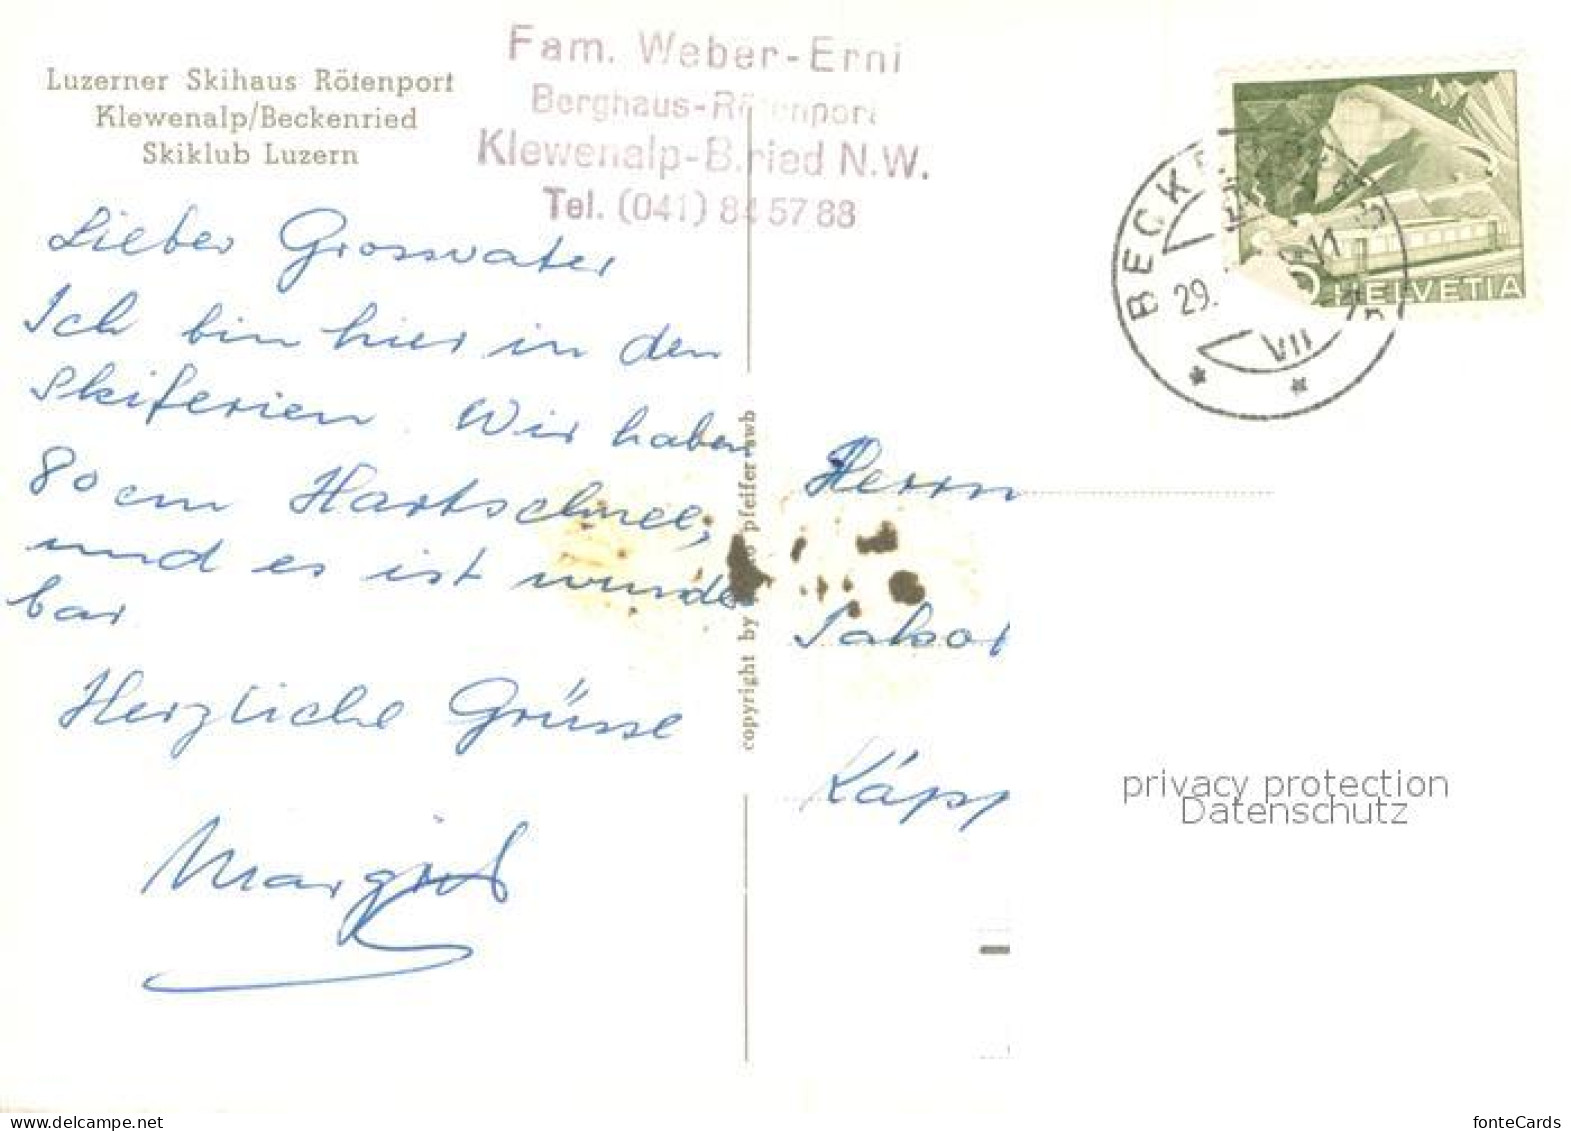 Luzerner Skihaus Rötenport
Klewenalp/Beckenried
Skiklub Luzern
Fam. Weber-Erni
Berghaus-Rötenport
Klewenalp-B.ried N.W.
Tel. (041) 84 57 88
Lieber Grossvater
Ich bin hier in den
Skiferien. Wir haben
80 cm Hartschnee,
und es ist wunder
bar
Herzliche Grüsse
Margrit
copyright by pfeifer awb
HELVETIA
BECK
29.
VII
Herrn
Käpp
privacy protection
Datenschutz
www.delcampe.net
fonteCards